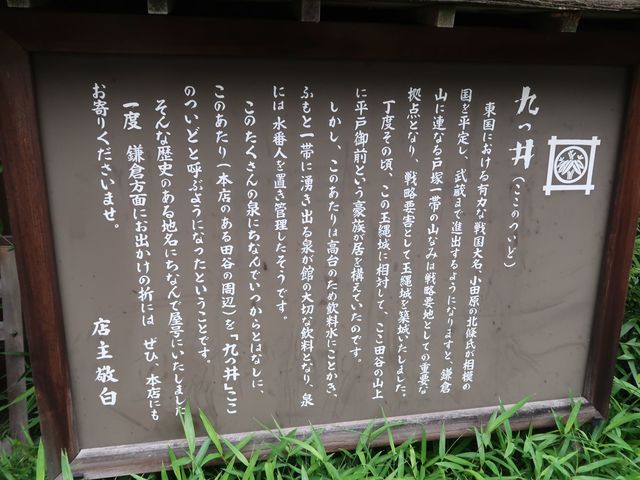 九つ井(ここのついど)
東国における有力な戦国大名、小田原の北條氏が相模の
国を平定し、武蔵まで進出するようになりますと、鎌倉
山に連なる戸塚一帯の山なみは戦略要地としての重要な
拠点となり、戦略要害として玉縄城を築城いたしました。
丁度その頃、この玉縄城に相対して、ここ田谷の山上
に平戸御前という豪族が居を構えていたのです。
しかし、このあたりは高台のため飲料水にことかき、
ふもと一帯に湧き出る泉が館の大切な飲料となり、泉
には水番人を置き管理したそうです。
このたくさんの泉にちなんでいつからとはなしに、
このあたり(本店のある田谷の周辺)を「九つ井」ここ
のついどと呼ぶようになったということです。
そんな歴史のある地名にちなんで屋号にいたしました
一度 鎌倉方面にお出かけの折には ぜひ 本店にも
お寄りくださいませ。
店主敬白